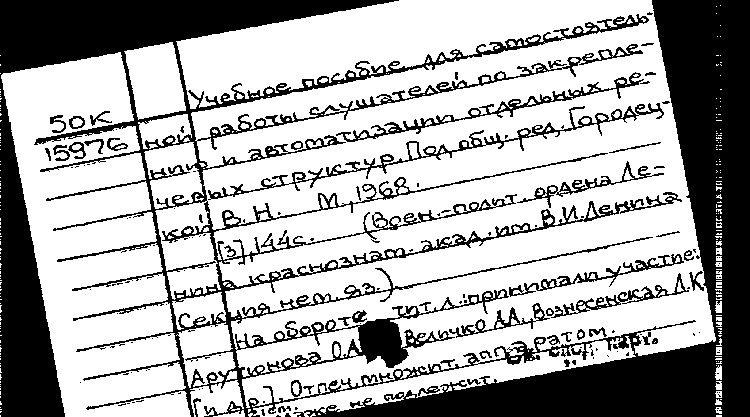 Учебное пособие для самостоятель-
50К
15976
ной работы слушателей по закрепле-
нию и автоматизации отдельных ре-
чевых структур. Под общ. ред. Городец-
кой В. Н. М., 1968.
[3], 144с. (Воен.-полит. ордена Ле-
нина краснознам. акад. им. В.И.Ленина.
Секция нем. яз.).
На обороте тит. л.: принимали участие:
Арутюнова О.А. Величко А.А., Вознесенская Л.К.
[и др.]. Отпеч. множит. аппаратом.
же не подлежит.